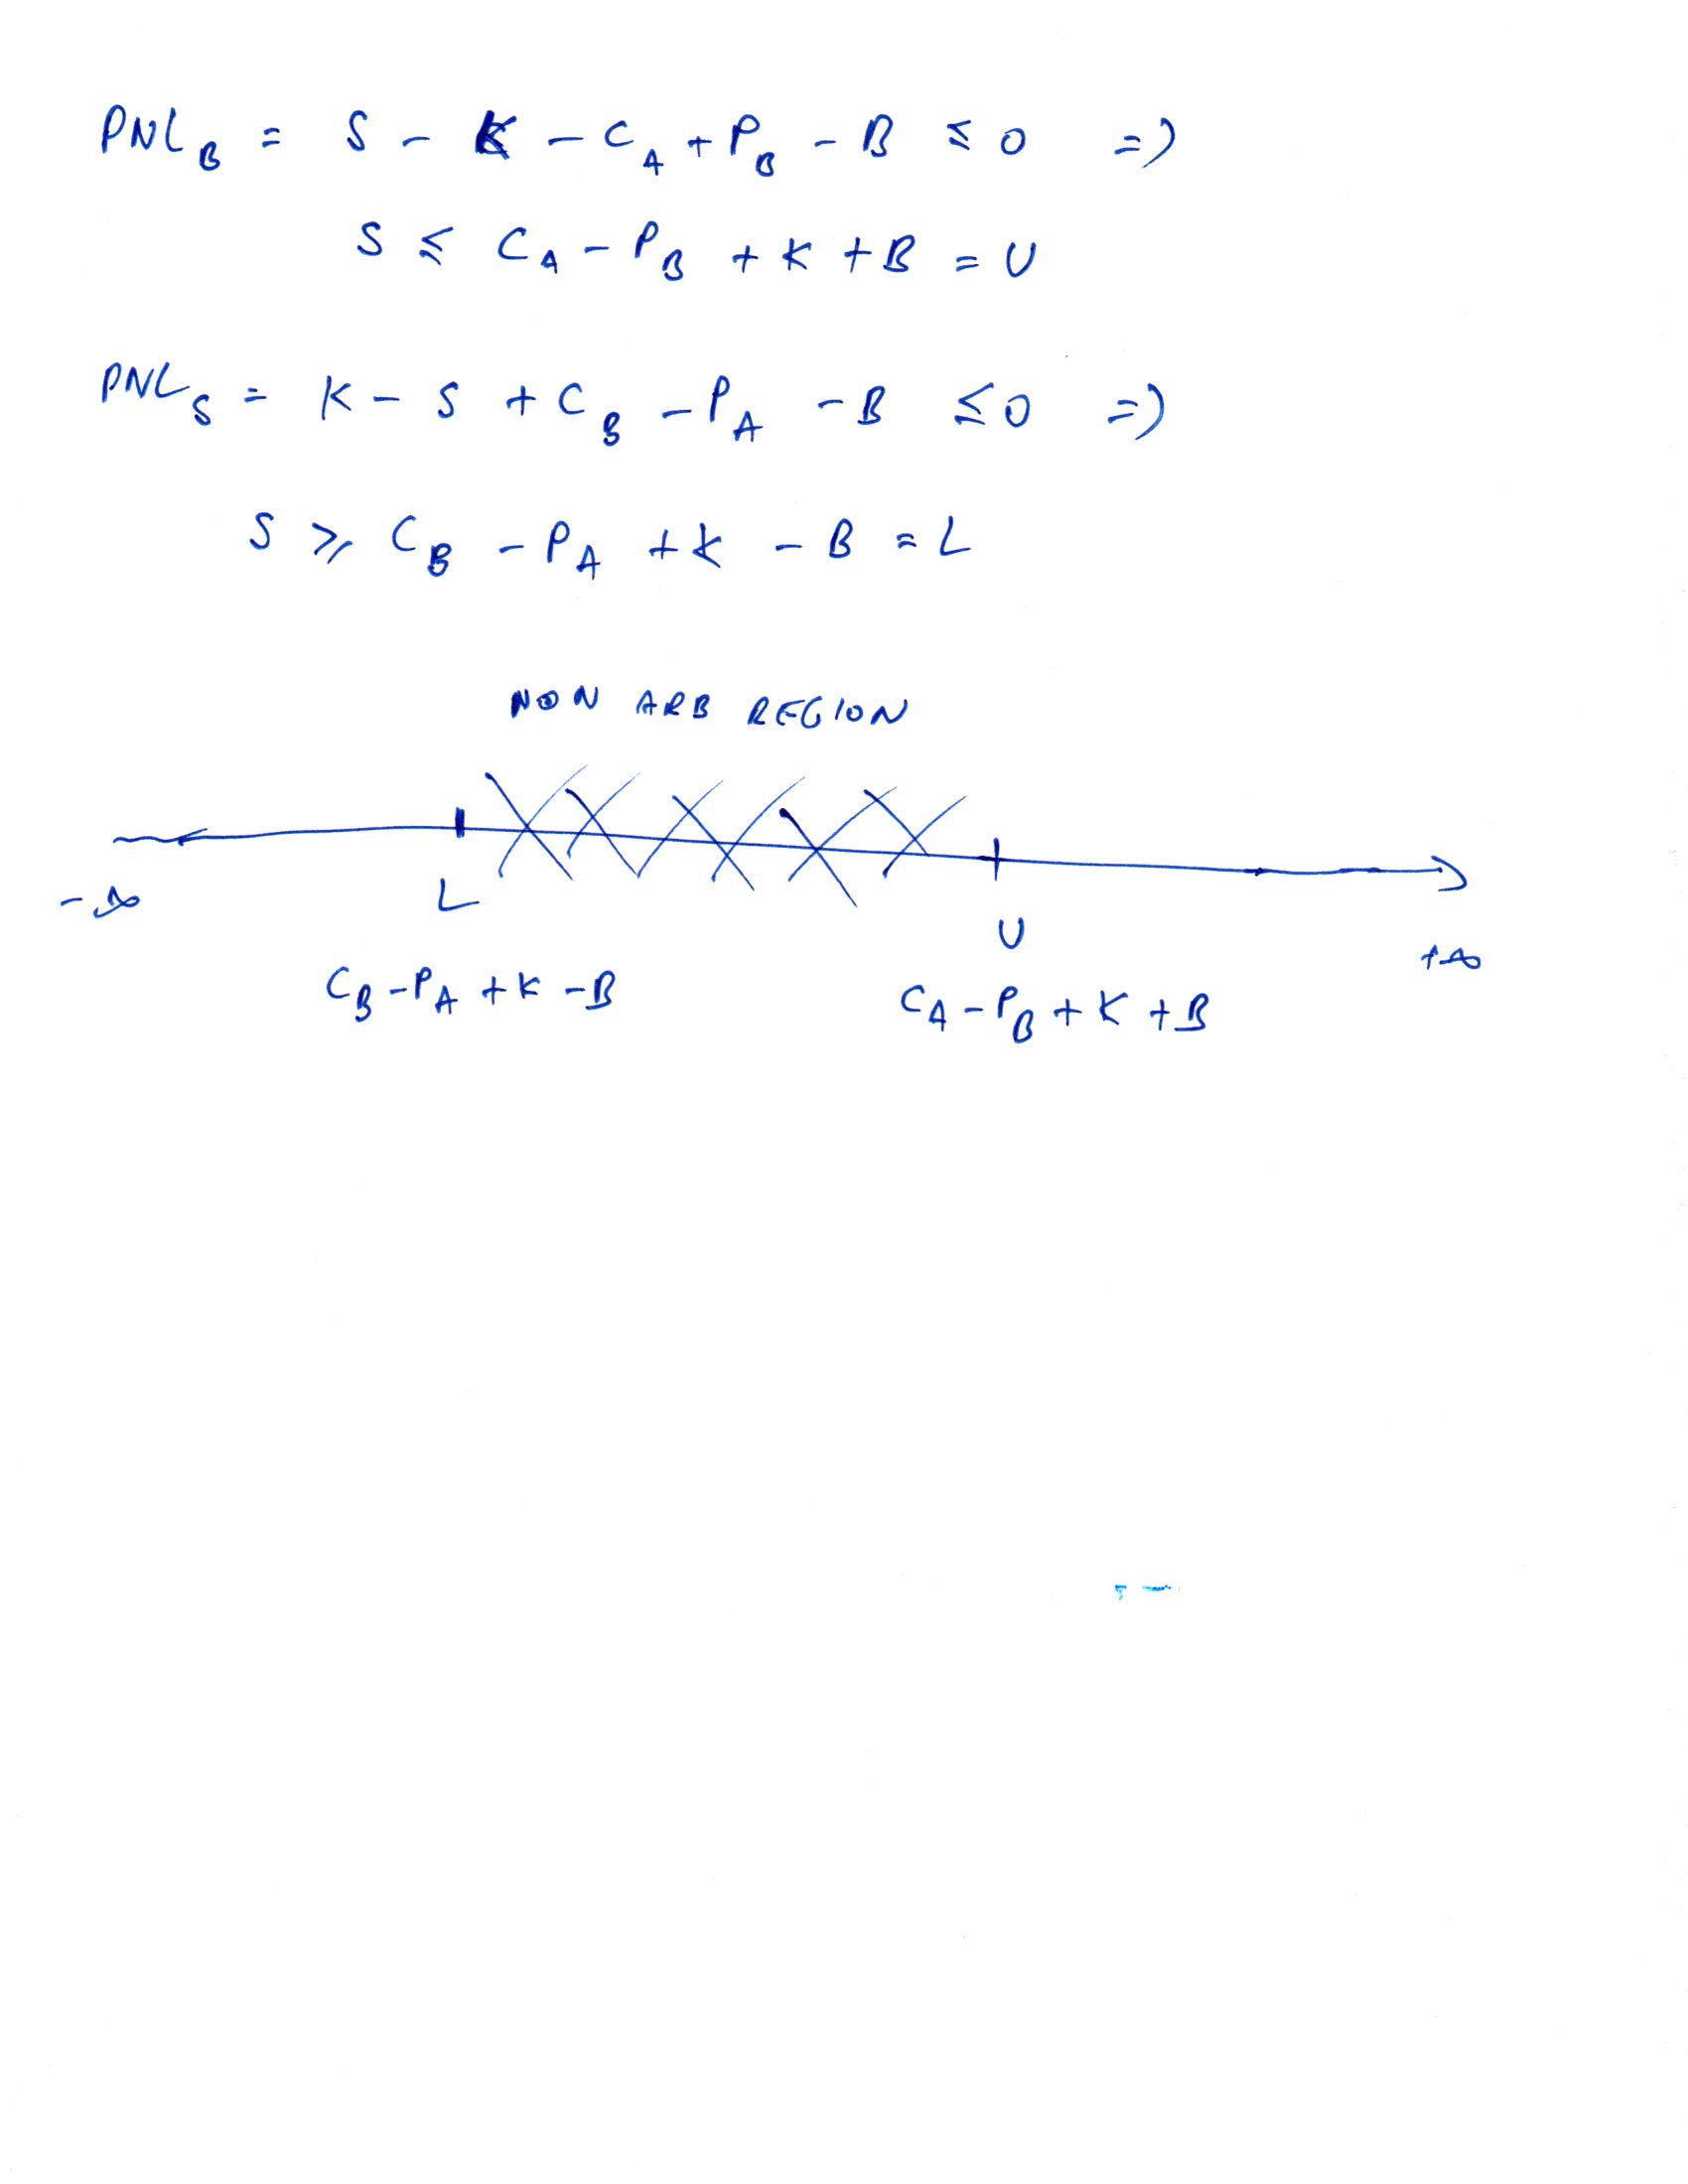 PNL_B = S - K - C_A + P_B - B ≤ 0 =>
S ≤ C_A - P_B + K + B = U
PNL_S = K - S + C_B - P_A - B ≤ 0 =>
S ≥ C_B - P_A + K - B = L
NON ARB REGION
-∞ L U +∞
C_B - P_A + K - B C_A - P_B + K + B